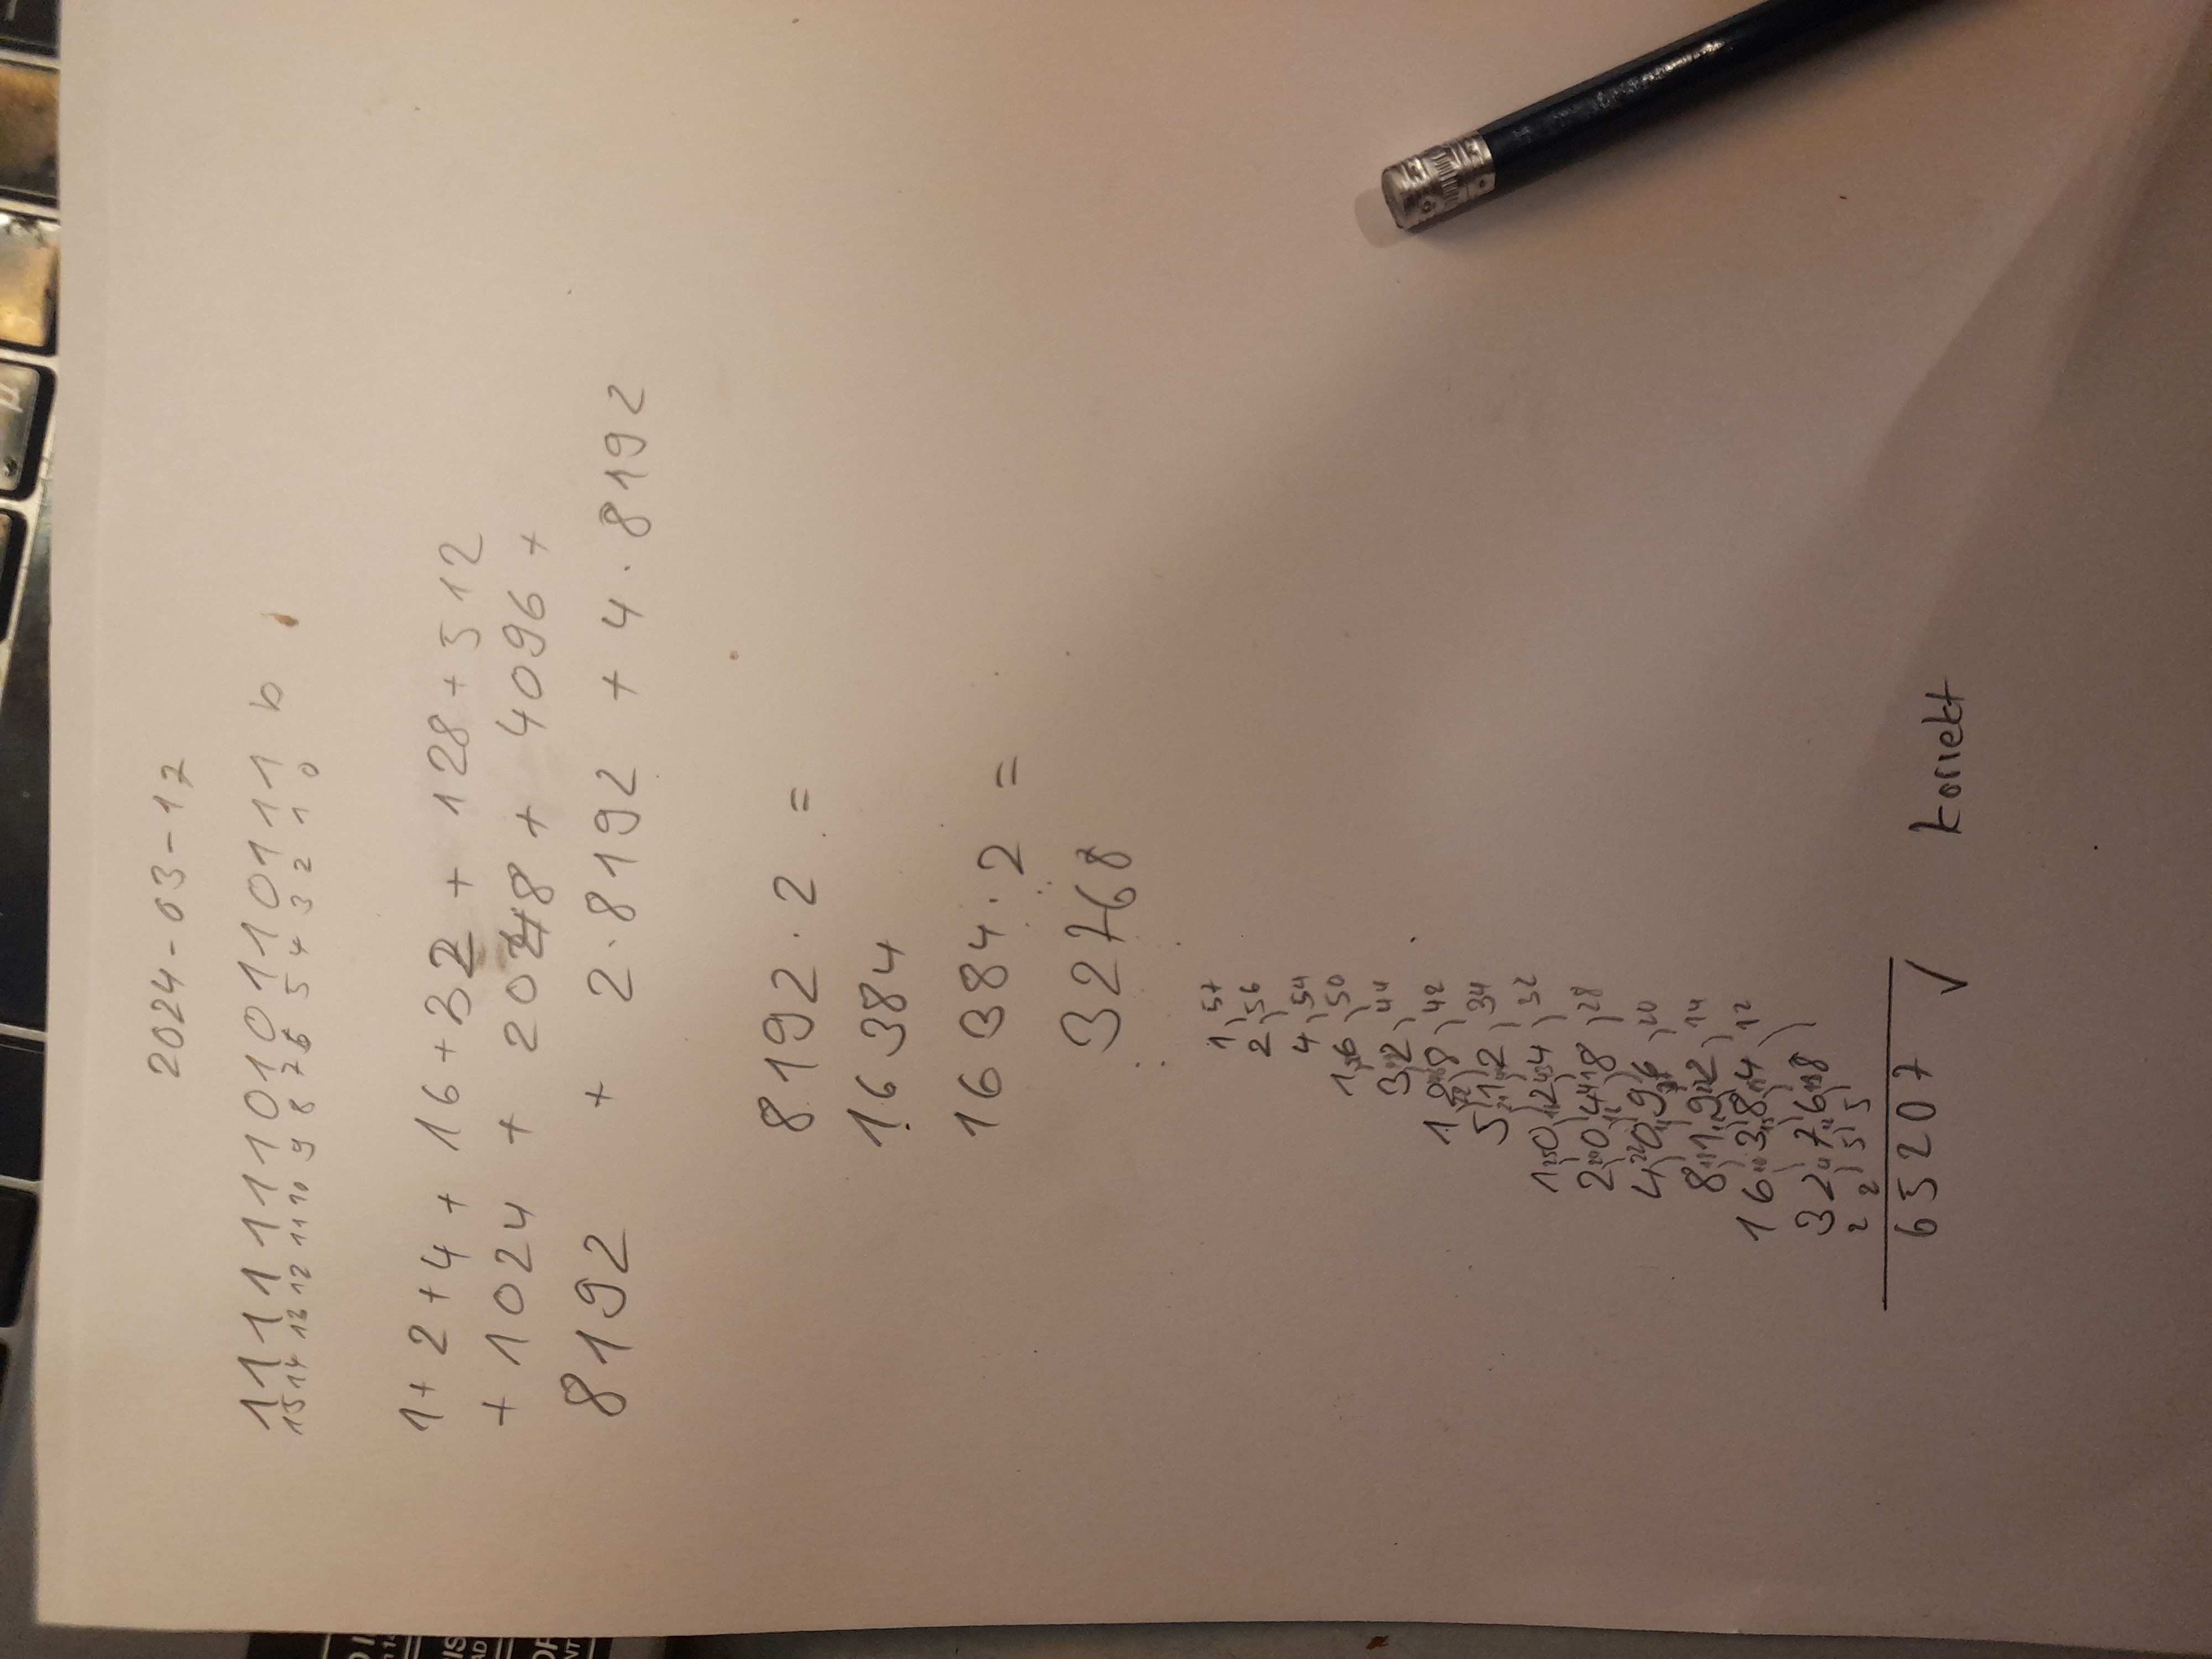 2024-03-17
1111111010110111 b
15 14 13 12 11 10 9 8 7 6 5 4 3 2 1 0
1+2+4+16+32+128+512
+1024 + 2048 + 4096 +
8192 + 2·8192 + 4·8192
8192·2 =
16384
16384·2 =
32768
1 57
2 56
4 54
16 50
32 44
128 42
512 34
1024 32
2048 28
4096 20
8192 14
16384 12
32768
2 2 5 5
65207 √ korrekt